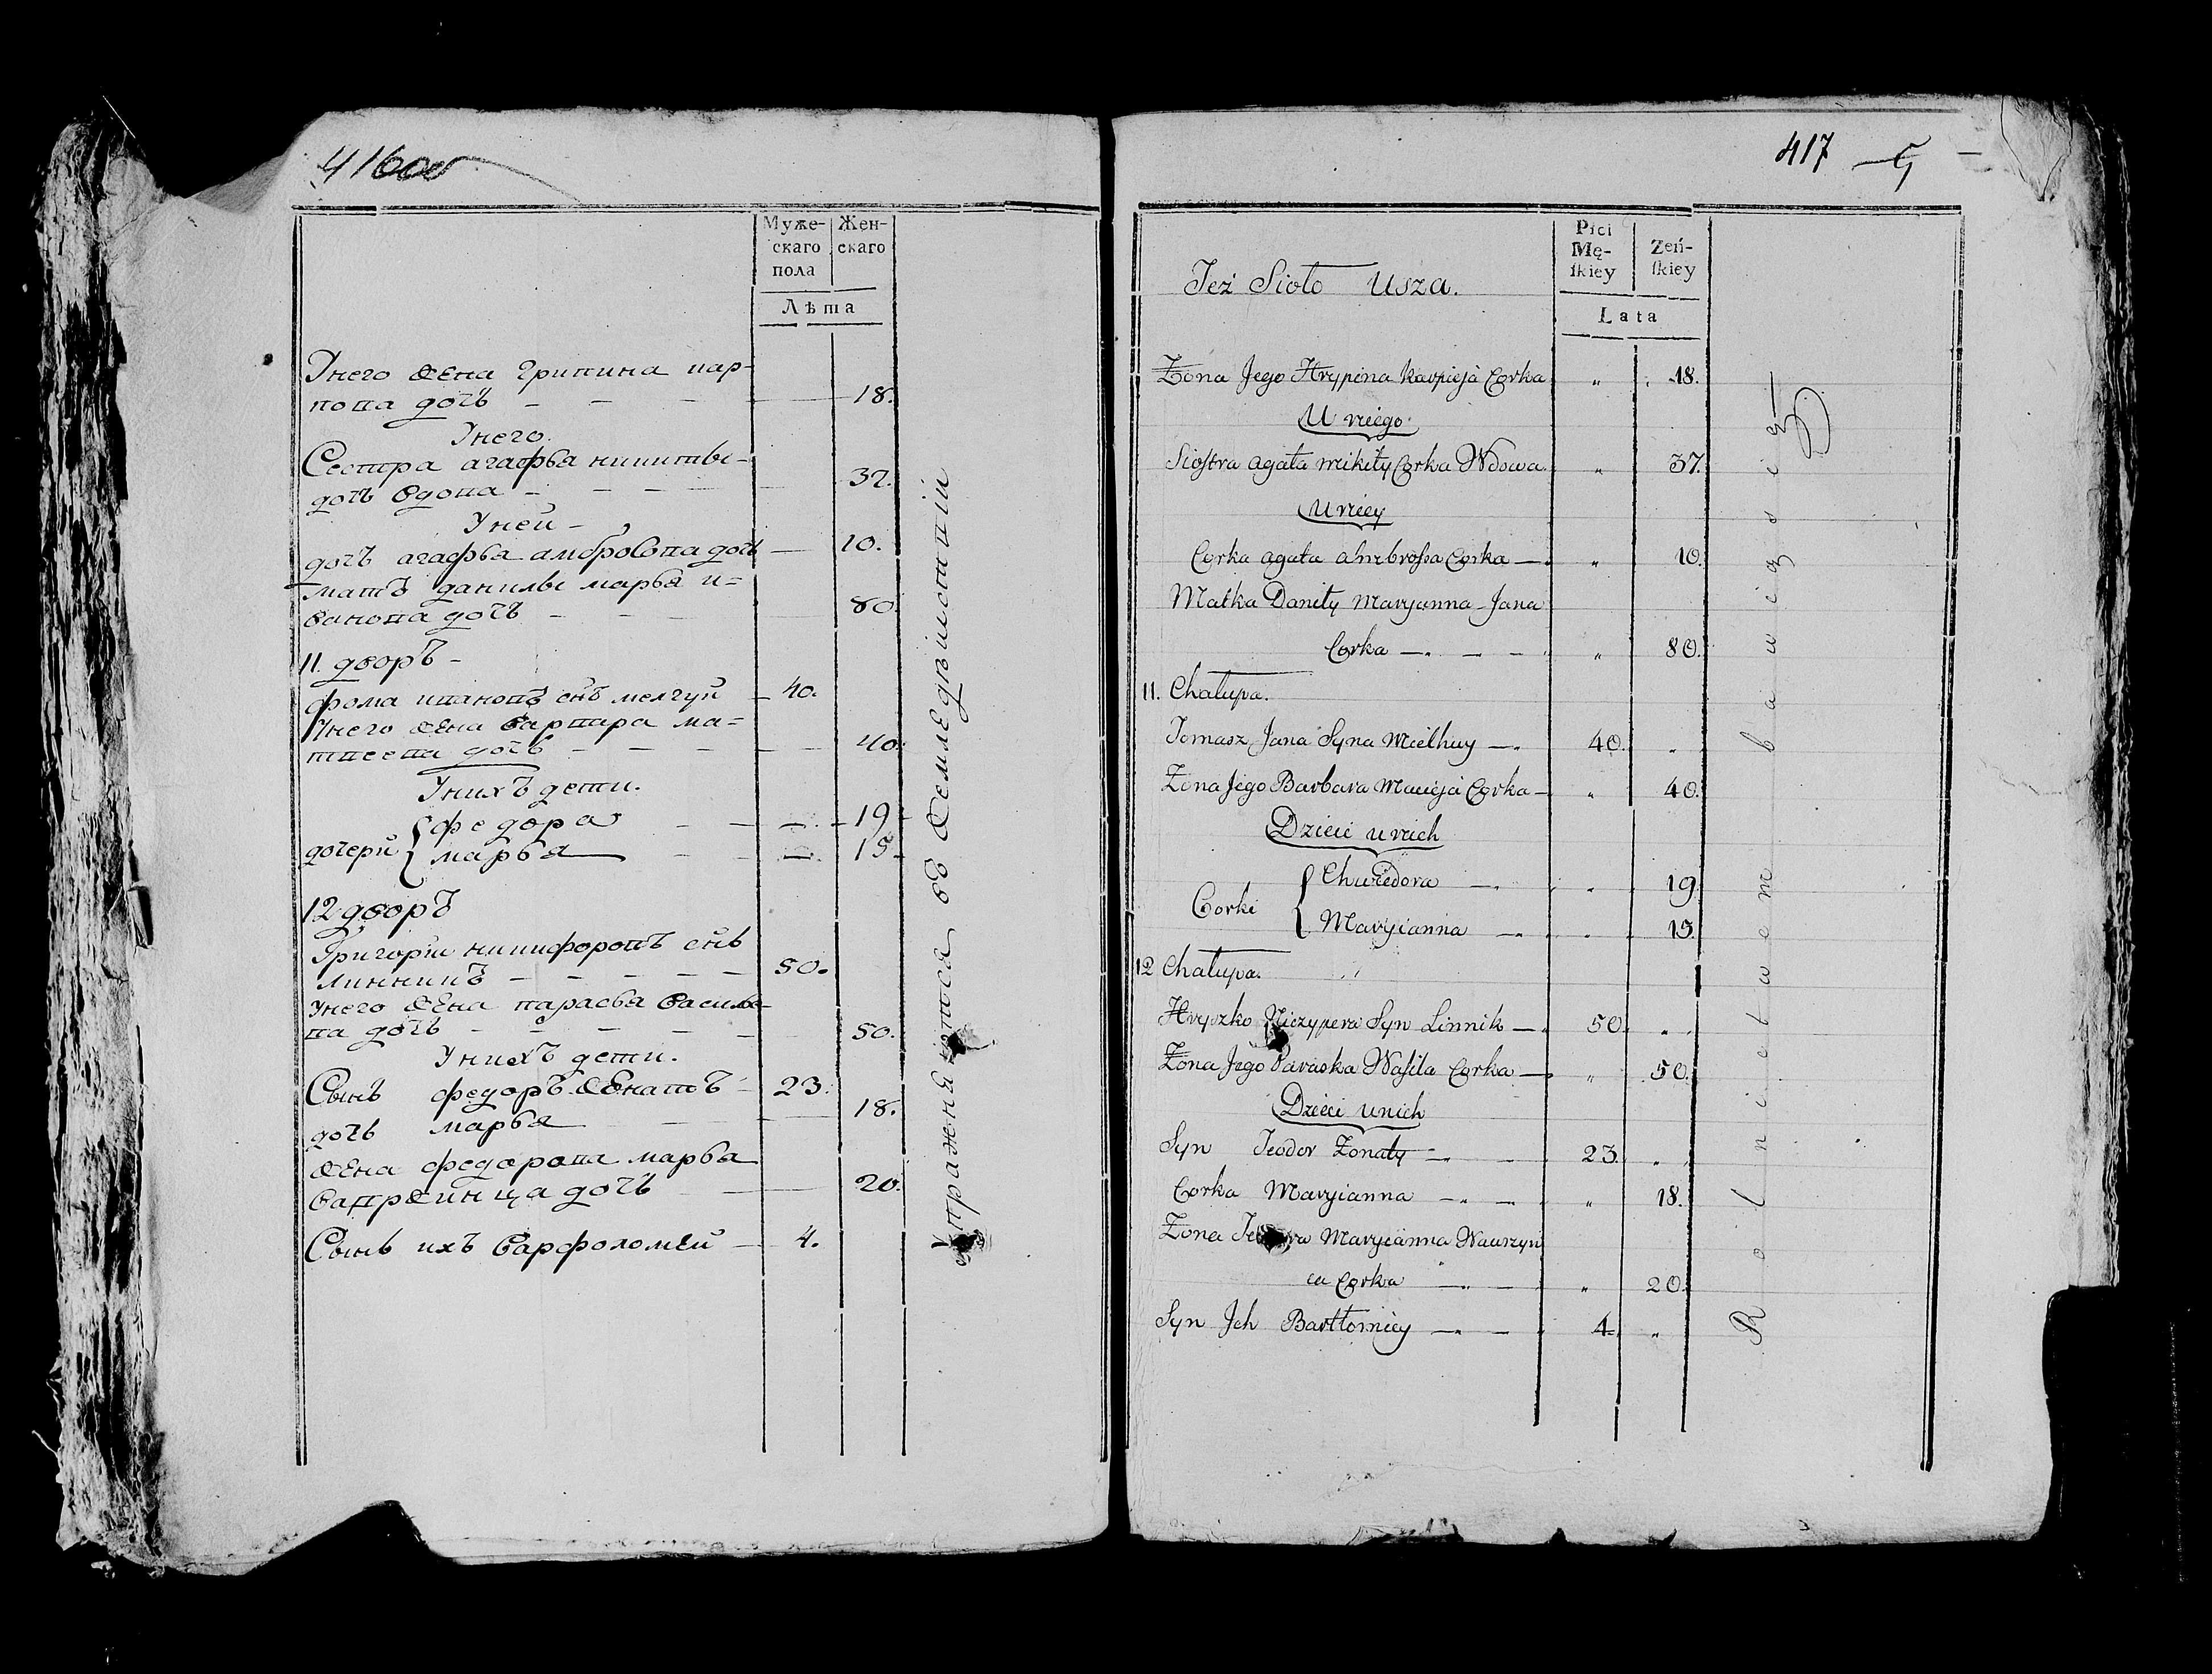 416об
Муже-
скаго
пола
Жен-
скаго
Лѣта
Унего жена грипина кар-
пова дочь — — — 18.
Унего.
Сестра агафья микитьи-
дочь вдова — — — 37.
Уней —
дочь агафья амбросова дочь — 10.
мать данилы марья и-
ванова дочь — — — 80.
11. дворъ —
фома ивановъ снъ мелгуй — 40.
Унего жена варвара ма-
твеева дочь — — — 40.
Унихъ дети.
дочери { федора — — — 19
марья — — — 15
12 дворъ
Григори никифоровъ снъ
линникъ — — — 50.
Унего жена парасья василье-
ва дочь — — — 50.
Унихъ дети.
Сынъ федоръ женатъ — 23.
дочь марья — — 18.
жена федорова марья
дочь — — 20.
Сынъ ихъ варфоломей — 4.
Упражняются въ земледѣлстви
417
Teź Sioło Usza.
Płci
Mę-
ſkiey
Zeń-
ſkiey
Lata
Żona Jego Hrypina Karpieja Corka " 18.
U niego
Siostra agata mikity Corka Wdowa " 37.
U niey
Corka agata ambroſza Corka — " 10.
Matka Daniły Maryanna Jana
Corka — " — — " 80.
11. Chałupa.
Tomasz Jana Syna Mielhuy — " 40. "
Żona Jego Barbara Macieja Corka — " 40.
Dzieci u nich
Corki { Chwiedora — " " 19.
Maryianna — " " 15.
12 Chałupa.
Hryszko Niczypera Syn Linnik — " 50. "
Żona Jego Paraska Waſila Corka — " 50.
Dzieci u nich
Syn Teodor Żonaty — " 23. "
Corka Maryianna — " — " 18.
Żona Teodora Maryianna Wawrzyn
ca Corka — " — " 20.
Syn Ich Bartłomiey — " — 4. "
Rolnictwem bawią się